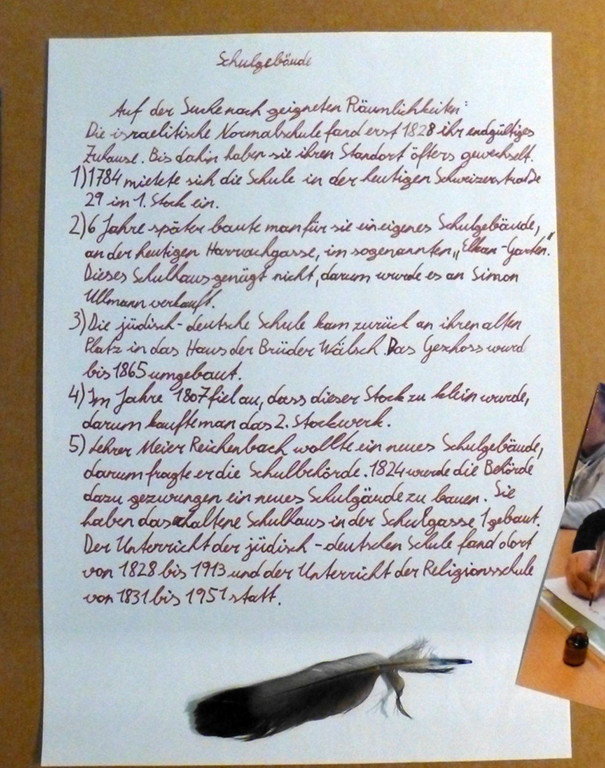 Schulgebäude
Auf der Suche nach geigneten Räumlichkeiten:
Die israelitische Normalschule fand erst 1828 ihr endgültiges
Zuhause. Bis dahin haben sie ihren Standort öfters gewechselt.
1) 1784 mietete sich die Schule in der heutigen Schweizerstraße
29 im 1. Stock ein.
2) 6 Jahre später baute man für sie ein eigenes Schulgebäude,
an der heutigen Harrachgasse, im sogenannten „Elkan-Garten."
Dieses Schulhaus genügt nicht, darum wurde es an Simon
Ullmann verkauft.
3) Die jüdisch-deutsche Schule kam zurück an ihren alten
Platz in das Haus der Brüder Wälsch. Das Geschoss wurd
bis 1865 umgebaut.
4) Im Jahre 1807 fiel au, dass dieser Stock zu klein wurde,
darum kaufte man das 2. Stockwerk.
5) Lehrer Meier Reichenbach wollte ein neues Schulgebäude,
darum fragte er die Schulbehörde. 1824 wurde die Behörde
dazu gezwungen ein neues Schulgäude zu bauen. Sie
haben das erhaltene Schulhaus in der Schulgasse 1 gebaut.
Der Unterricht der jüdisch-deutschen Schule fand dort
von 1828 bis 1913 und der Unterricht der Religionsschule
von 1831 bis 1951 statt.